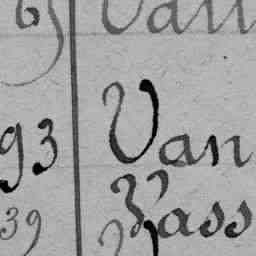 65 Van
93 Van
Zass
39